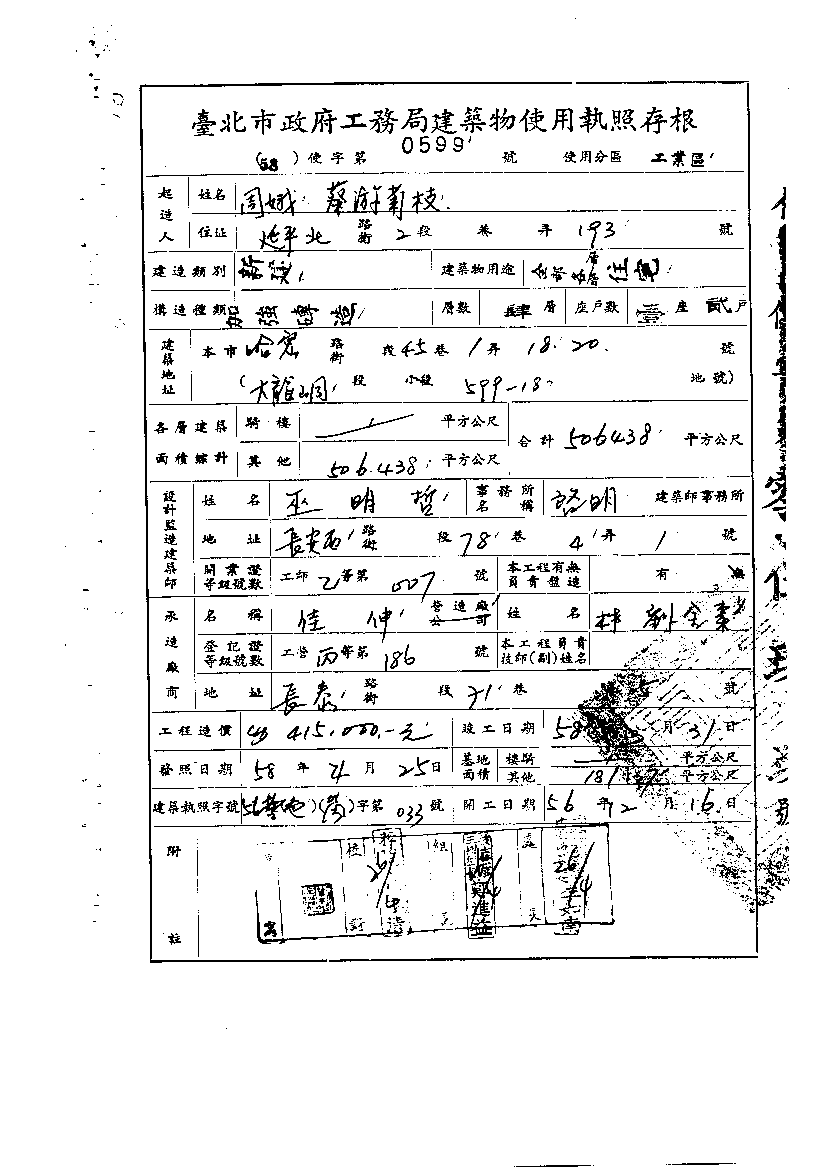 臺北市政府工務局建築物使用執照存根
(58)使字第0599號 使用分區 工業區
起造人 姓名 周娥 蔡游菊枝
住址 延平北路街2段 巷 弄193號
建造類別 新建 建築物用途 全部各層住宅
構造種類 加強磚造 層數 肆層 座戶數 壹座 貳戶
建築地址 本市哈密路街 段45巷1弄18.20.號
(大龍峒段 小段 599-18 地號)
各層建築面積總計 騎樓 平方公尺 合計506.438平方公尺
其他 506.438平方公尺
設計監造建築師 姓名 巫明哲 事務所名稱 啓明 建築師事務所
地址 長安西路街 段78巷4弄1號
開業證等級號數 工師乙等第007號 本工程有無負責監造 有 無
承造廠商 名稱 佳伸 營造廠公司 姓名 林劉金
登記證等級號數 工營丙等第186號 本工程負責技師(副)姓名
地址 長泰路街 段71巷 5號
工程造價 415,000.-元 竣工日期 58 月31日
發照日期 58年4月25日 基地面積 騎樓 平方公尺
其他 181 平方公尺
建築執照字號 字第033號 開工日期 56年12月16日
附註
校對
組長
處長
26/4
25/4